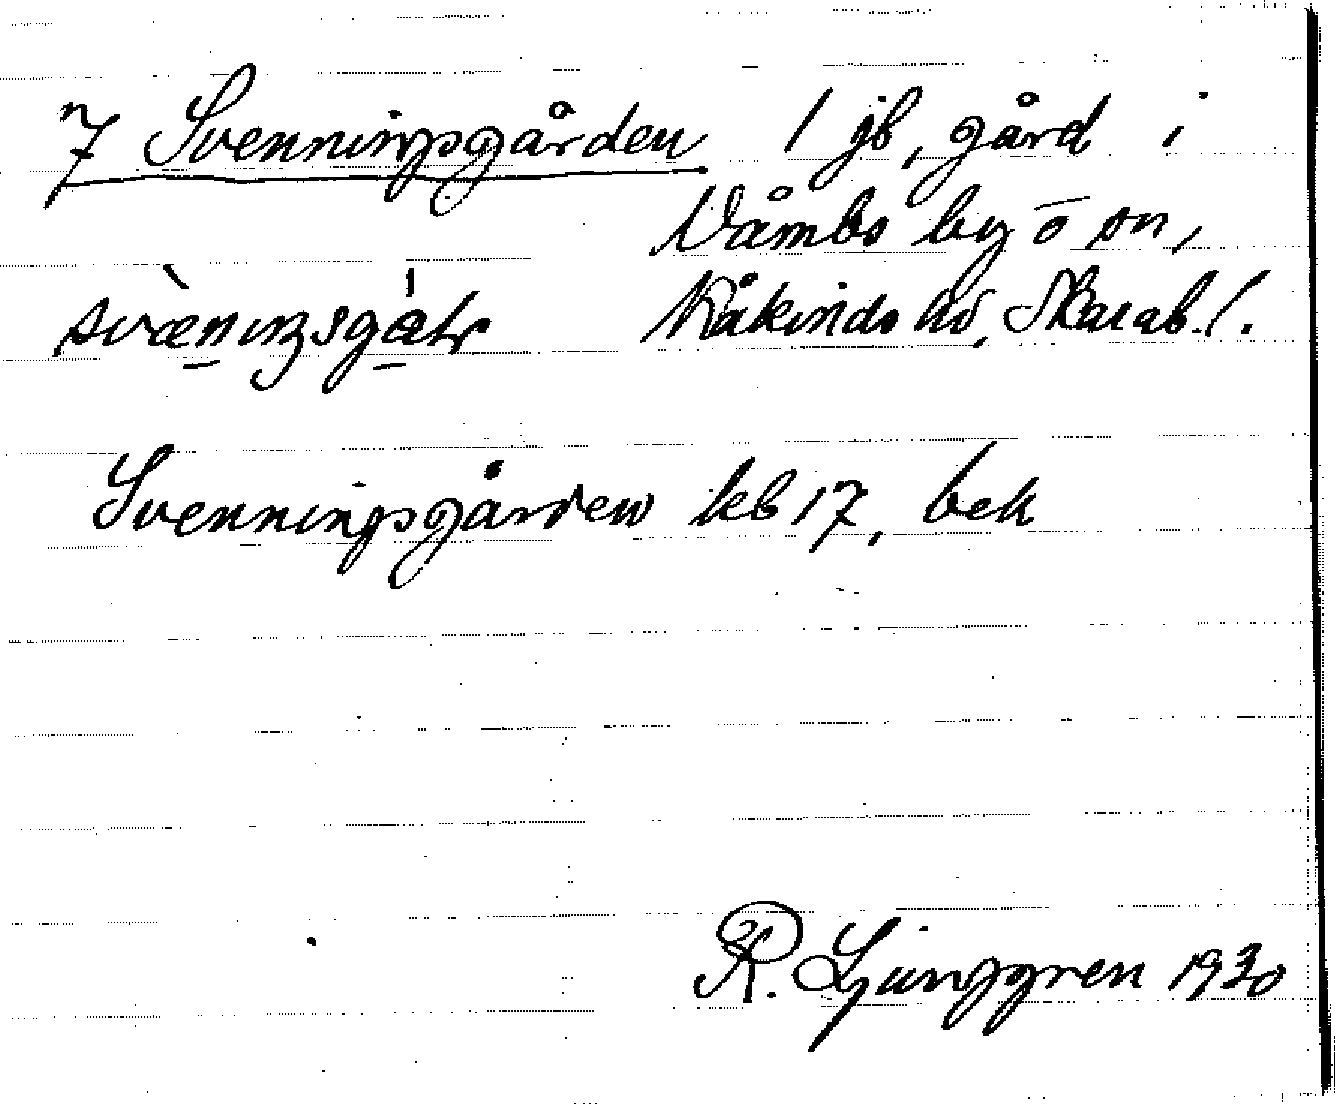 7 Svenningsgården 1 jb, gård i
Våmbs by o sn,
svæniŋsgaʹtr Kåkinds hd, Skarab. l.
Svenningsgården kb 17, bek
R. Ljunggren 1930